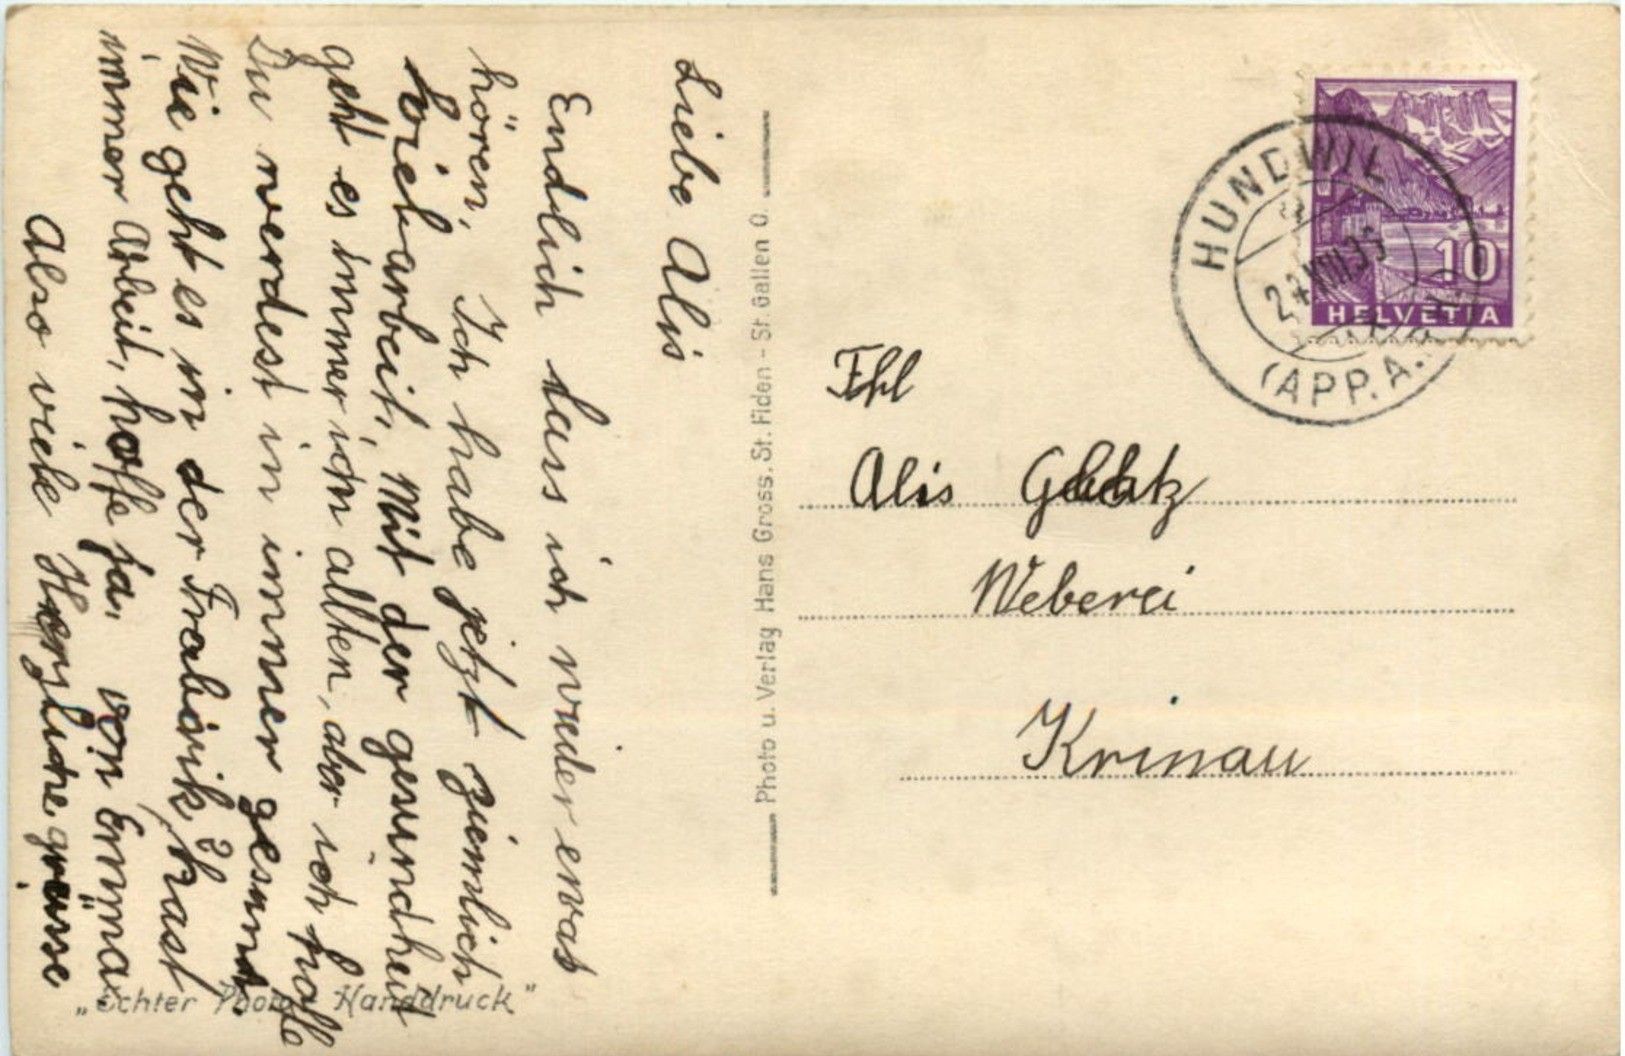 Liebe Alis
Endlich dass ich wieder ewas
hören, Ich habe jetzt ziemlich
vielarbeit, Mit der gesundheit
geht es immer ich alten, aber ich hoffe
Du werdest in immer gesund.
Wie geht es in der Frabirik? hast
immer Arbeit, hoffe ja. von Emma
Also viele Herzliche grüsse
"Echter Photo Handdruck"
Photo u. Verlag Hans Gross, St. Fiden - St. Gallen O.
HUNDWIL
24.VIII.35
(APP. A.
10
HELVETIA
Alis
Weberei
Krinau